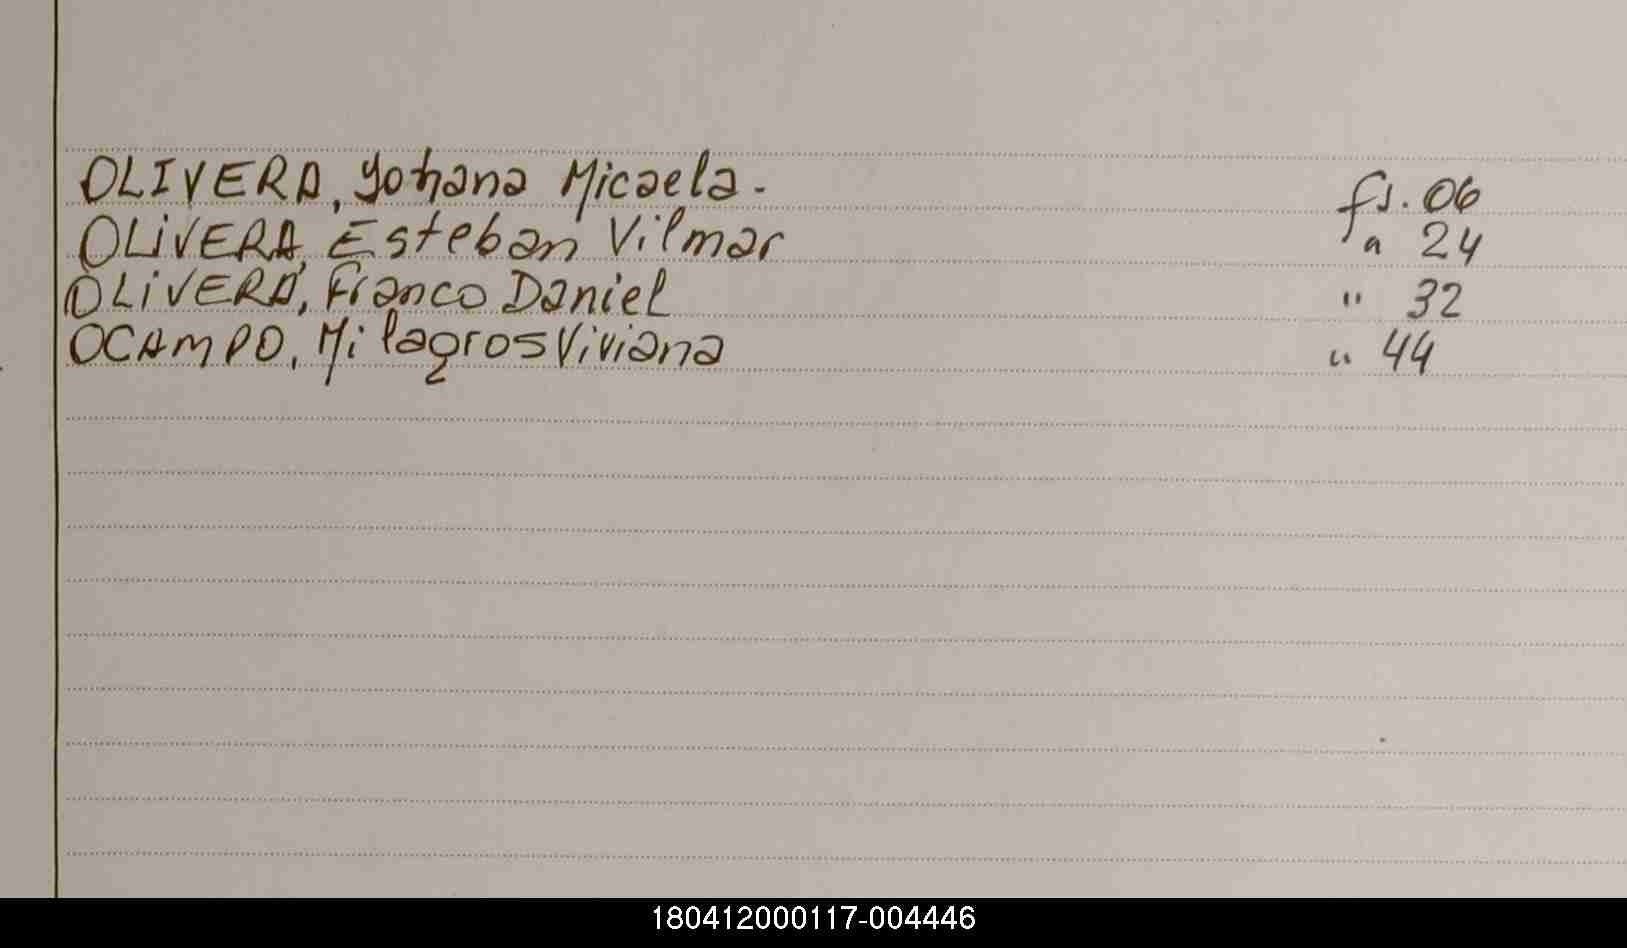 OLIVERA, Yohana Micaela. fs. 06
OLiVERA, Esteban Vilmar " 24
OLiVERA, Franco Daniel " 32
OCAMPO, Milagros Viviana " 44
180412000117-004446